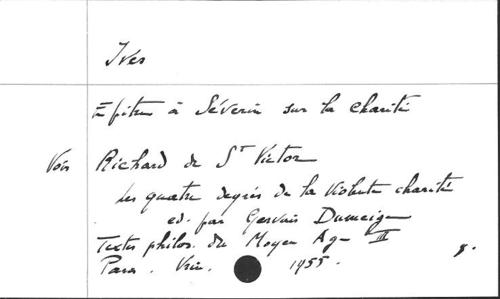 Ives
Epitre à Séverin sur la charité
Voir Richard de St Victor
Les quatre degrés de la violente charité
ed. par Gervais Dumeige
Textes philos. du Moyen Age III
Paris. Vrin. 1955. 8.